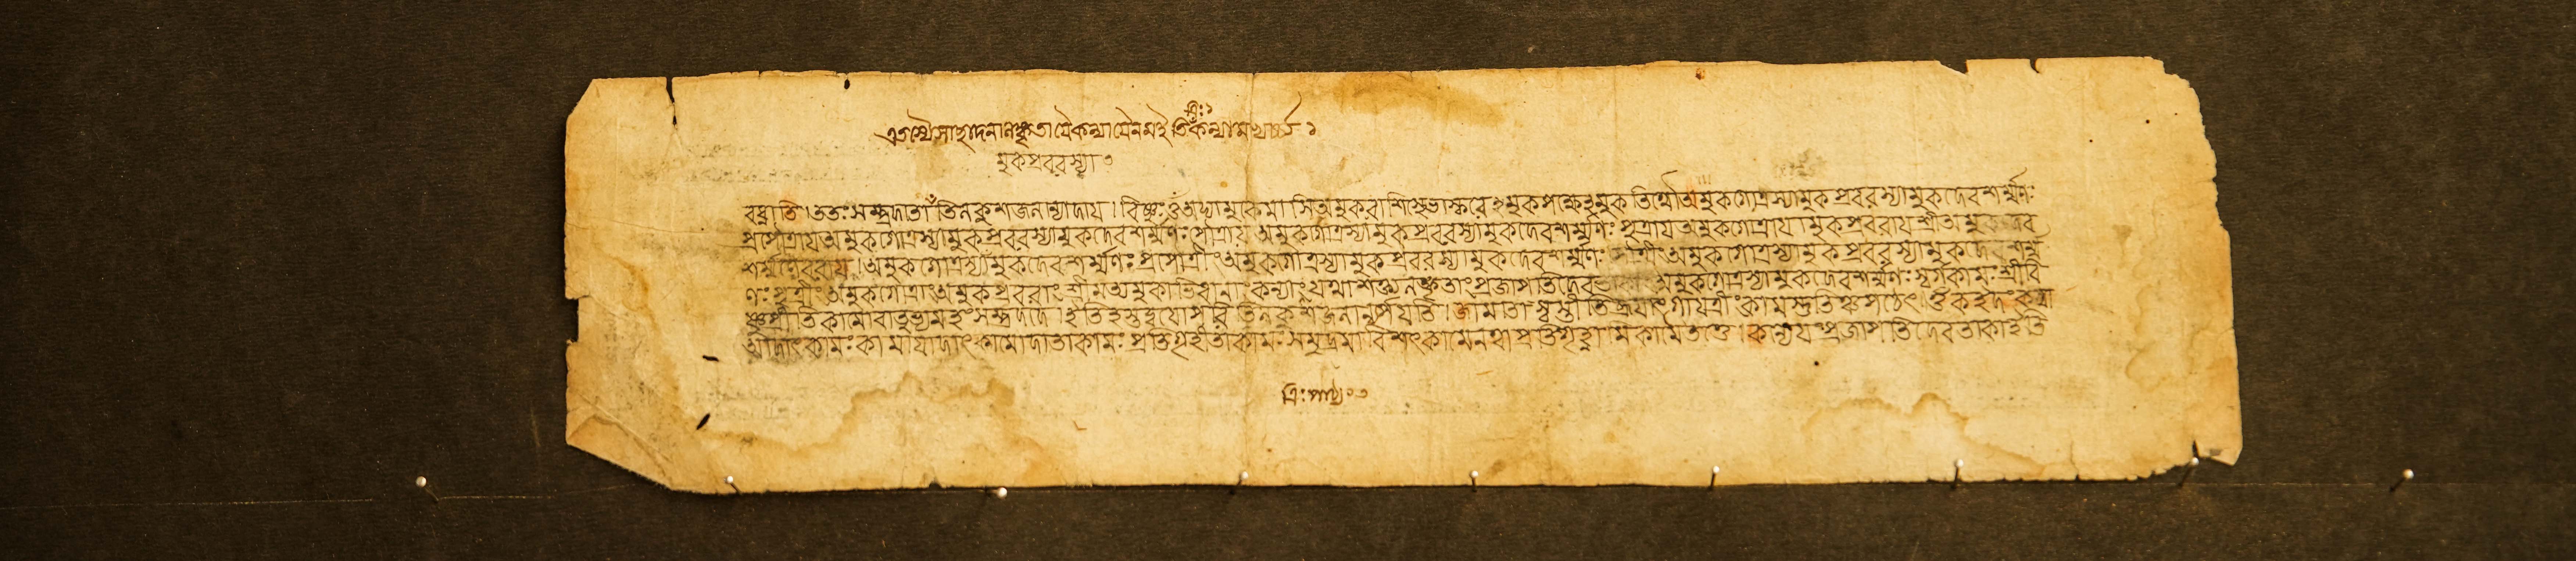 এতস্মৈ সাচ্ছাদনালঙ্কৃতায়ৈ কন্যায়ৈ নমঃ ইতি কন্যামভ্যর্চ্চ্য ১
ত্রিঃ ১
মুকপ্রবরস্যা ৩
বধ্নাতি । ততঃ সম্প্রদাতা তিলকুশজলান্যাদায় । বিষ্ণুঃ ওঁ অদ্যামুকেমাসি অমুকরাশিস্থে ভাস্করে হমুকপক্ষেহমুকতিথৌ অমুকগোত্রস্যামুকপ্রবরস্যামুকদেবশর্ম্মণঃ
প্রপৌত্রায় অমুকগোত্রস্যামুকপ্রবরস্যামুকদেবশর্ম্মণঃ পৌত্রায় অমুকগোত্রস্যামুকপ্রবরস্যামুকদেবশর্ম্মণঃ পুত্রায় অমুকগোত্রায়ামুকপ্রবরায় শ্রীঅমুকদেব
শর্ম্মণে বরায় । অমুকগোত্রস্যামুকদেবশর্ম্মণঃ প্রপৌত্রীং অমুকগোত্রস্যামুকপ্রবরস্যামুকদেবশর্ম্মণঃ পৌত্রীং অমুকগোত্রস্যামুকপ্রবরস্যামুকদেবশর্ম্ম
ণঃ পুত্রীং অমুকগোত্রাং অমুকপ্রবরাং শ্রীমত্যমুকাভিধানাং কন্যাং যথাশক্ত্যলঙ্কৃতাং প্রজাপতিদেবতাকাং অমুকগোত্রস্যামুকদেবশর্ম্মণঃ স্বর্গকামঃ শ্রীবি
ষ্ণুপ্রীতিকামো বা তুভ্যমহং সম্প্রদদে । ইতি হস্তদ্বয়োপরি তিলকুশজলান্যর্পয়তি । জামাতা স্বস্তীতি ব্রূয়াৎ গায়ত্রীং কামস্তুতিঞ্চ পঠেৎ । ওঁ ক ইদং কস্মা
অদাৎ কামঃ কামায়াদাৎ কামো দাতা কামঃ প্রতিগ্রহীতা কামঃ সমুদ্রমাবিশৎ কামেন ত্বা প্রতিগৃহ্ণামি কামৈতত্তে । কন্যেয়ং প্রজাপতিদেবতাকা ইতি
ত্রিঃ পাঠ্যং ৩